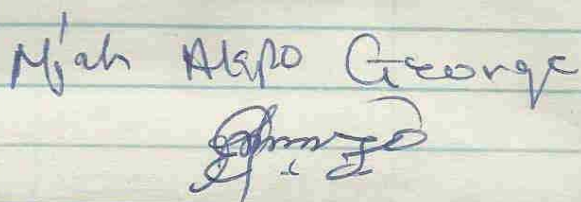 Njah Akpo George